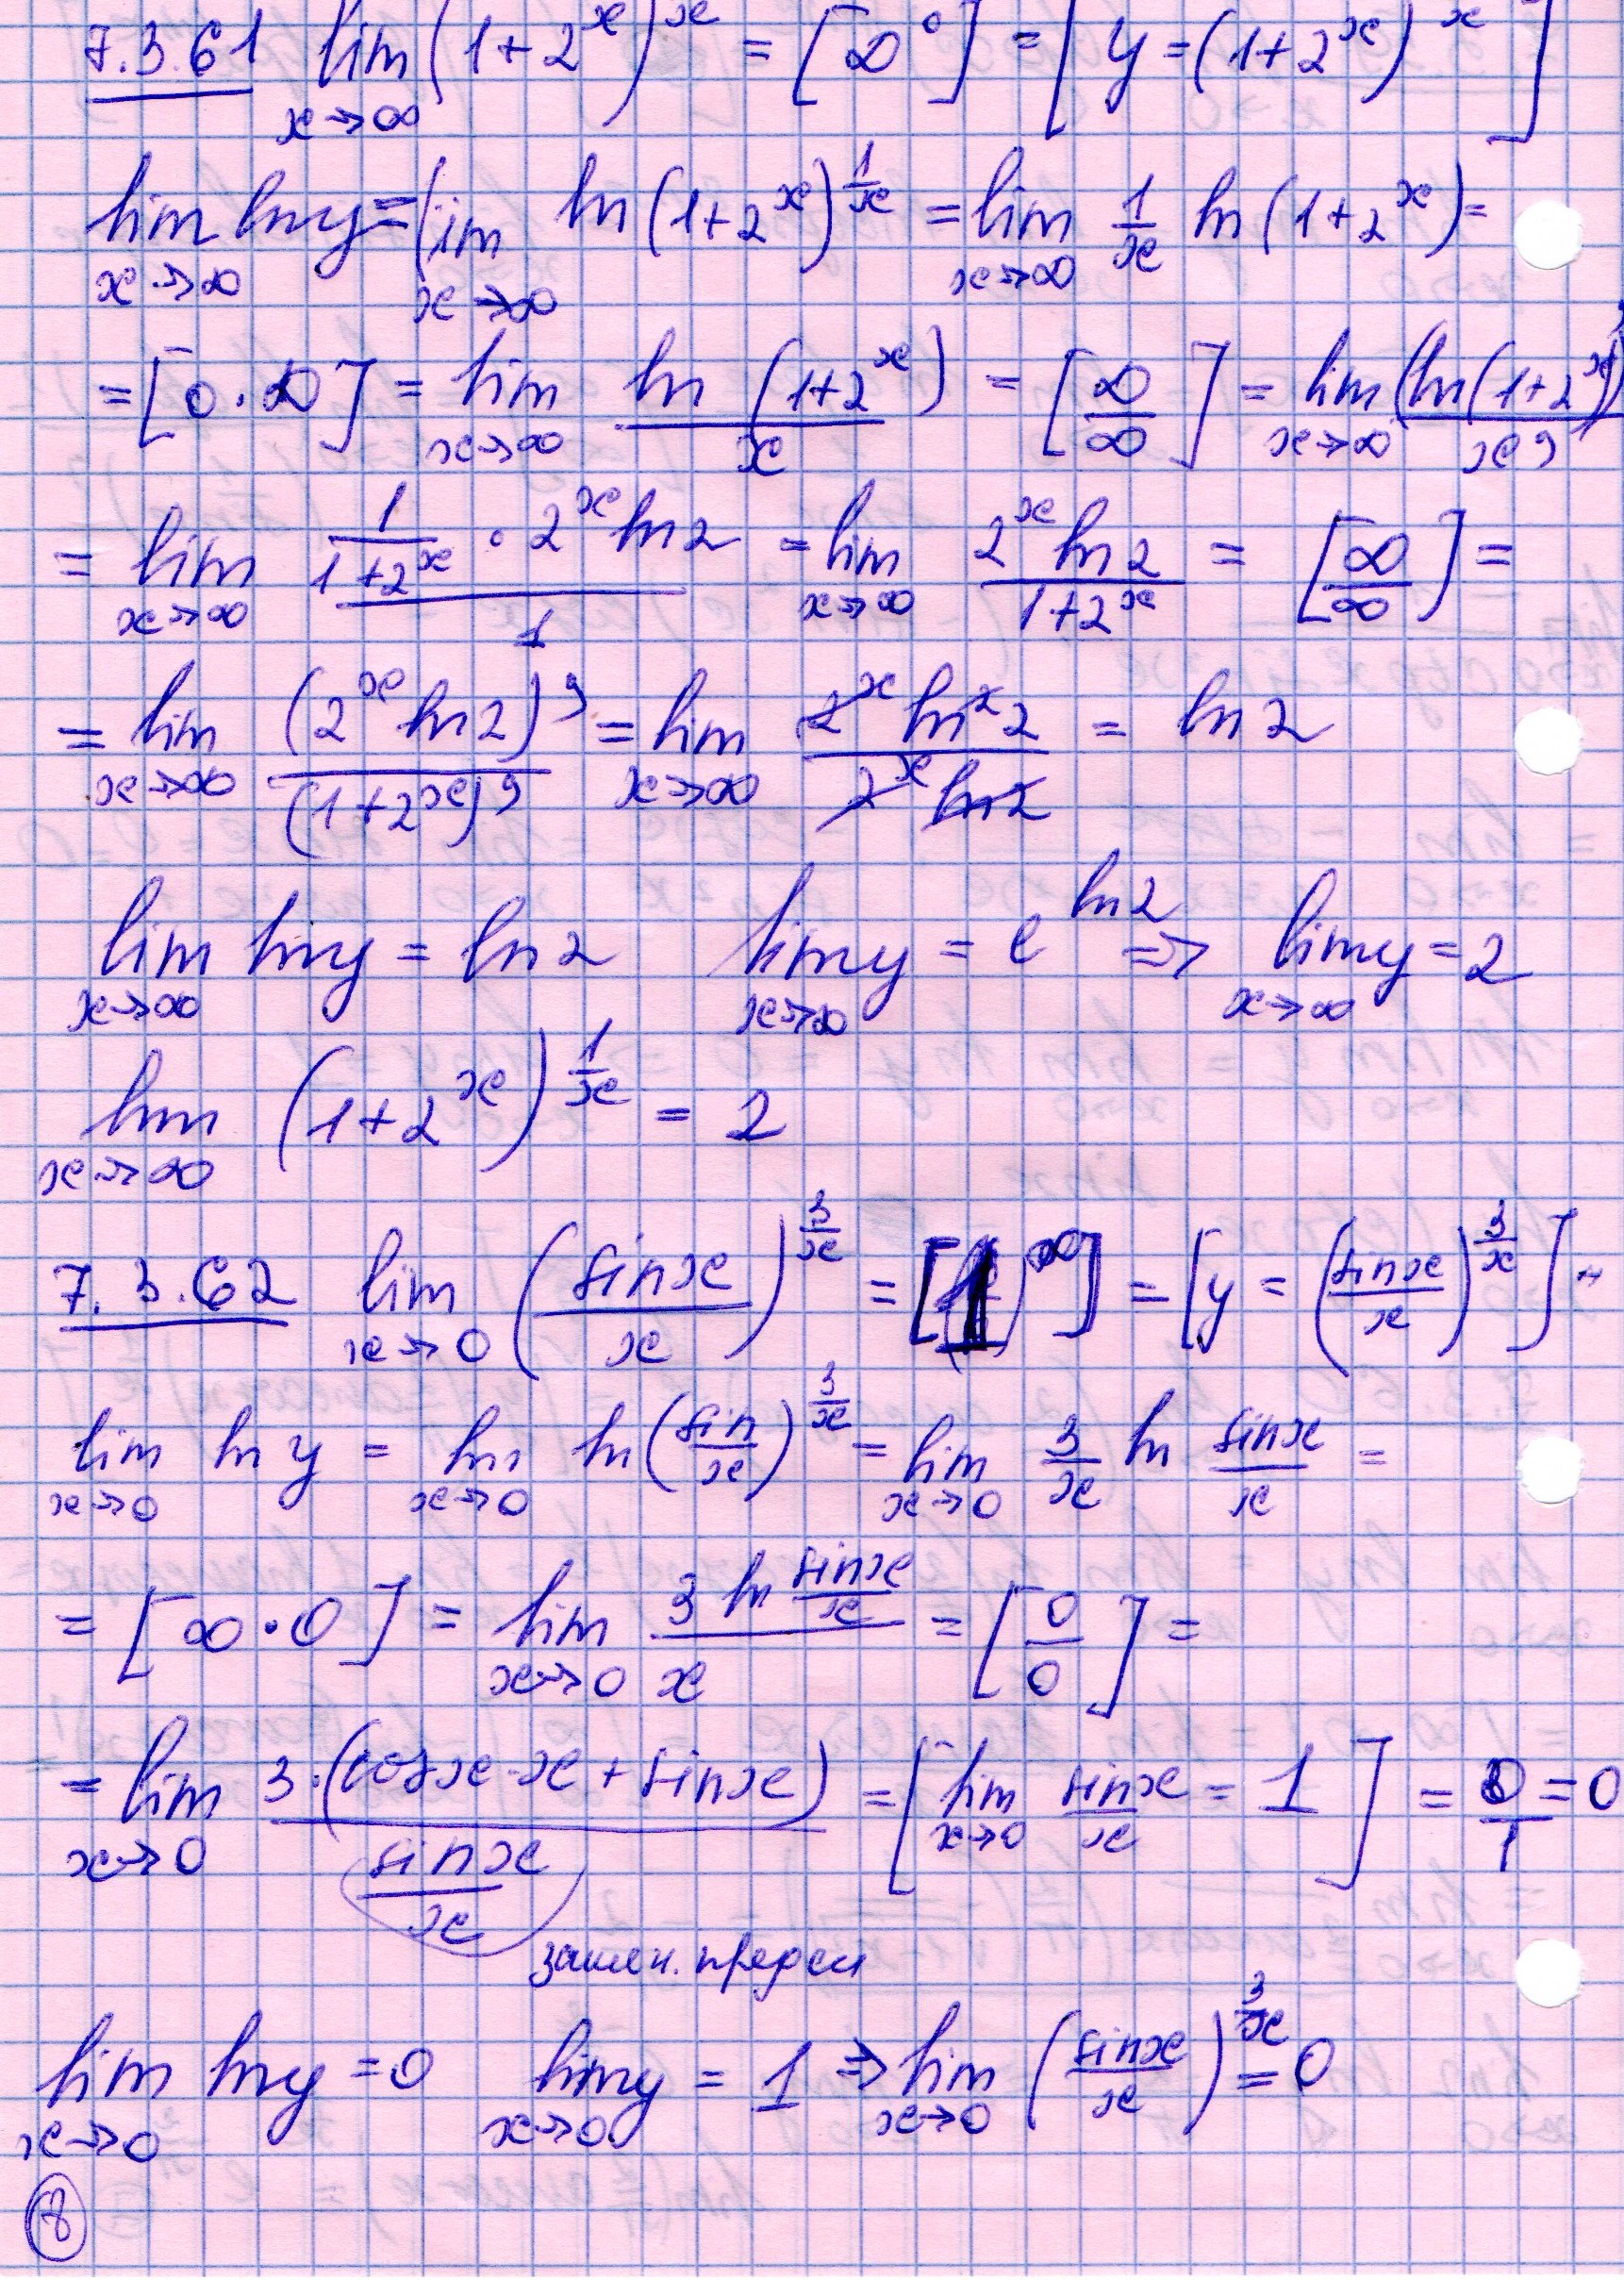 7.3.61 lim x→∞ (1+2^x)^x = [∞^0] = [y=(1+2^x)^x]
lim x→∞ ln y = lim x→∞ ln(1+2^x)^(1/x) = lim x→∞ 1/x ln(1+2^x) =
= [0·∞] = lim x→∞ ln(1+2^x)/x = [∞/∞] = lim x→∞ (ln(1+2^x))'/x'
= lim x→∞ (1/(1+2^x) · 2^x ln2)/1 = lim x→∞ 2^x ln2/(1+2^x) = [∞/∞] =
= lim x→∞ (2^x ln2)'/(1+2^x)' = lim x→∞ 2^x ln^2 2/(2^x ln2) = ln2
lim x→∞ ln y = ln2 lim x→∞ y = e^(ln2) ⇒ lim x→∞ y = 2
lim x→∞ (1+2^x)^(1/x) = 2
7.3.62 lim x→0 (sinx/x)^(3/x) = [1^∞] = [y = (sinx/x)^(3/x)]
lim x→0 ln y = lim x→0 ln(sin/x)^(3/x) = lim x→0 3/x ln sinx/x =
= [∞·0] = lim x→0 (3 ln sinx/x)/x = [0/0] =
= lim x→0 3·(cosx·x + sinx)/(sinx/x) = [lim x→0 sinx/x = 1] = 0/1 = 0
замеч. предел
lim x→0 ln y = 0 lim x→0 y = 1 ⇒ lim x→0 (sinx/x)^(3/x) = 0
8